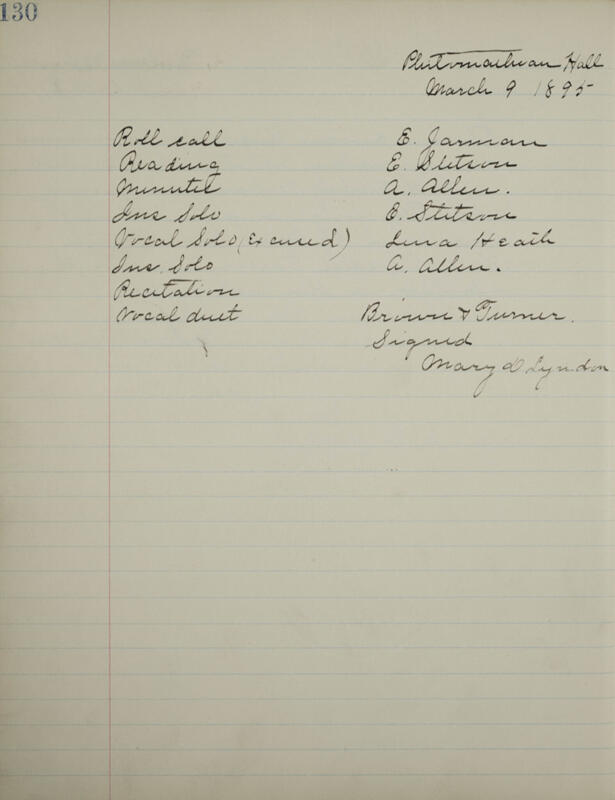 130
Philomathean Hall
March 9 1895
Roll call E. Jarman
Reading E. Stetson
Minutes A. Allen.
Ins Solo E. Stetson
Vocal Solo (Excused) Lena Heath
Ins. Solo A. Allen.
Recitation
Vocal duet Brown & Turner.
Signed
Mary D Lyndon